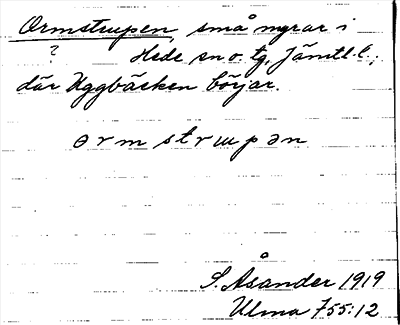 Ormstrupen, små myrar i
? Hede sn o. tg, Jämtl. l.;
där Uggbäcken börjar.
ormstrɯpən
S. Åsander 1919
Ulma 755:12